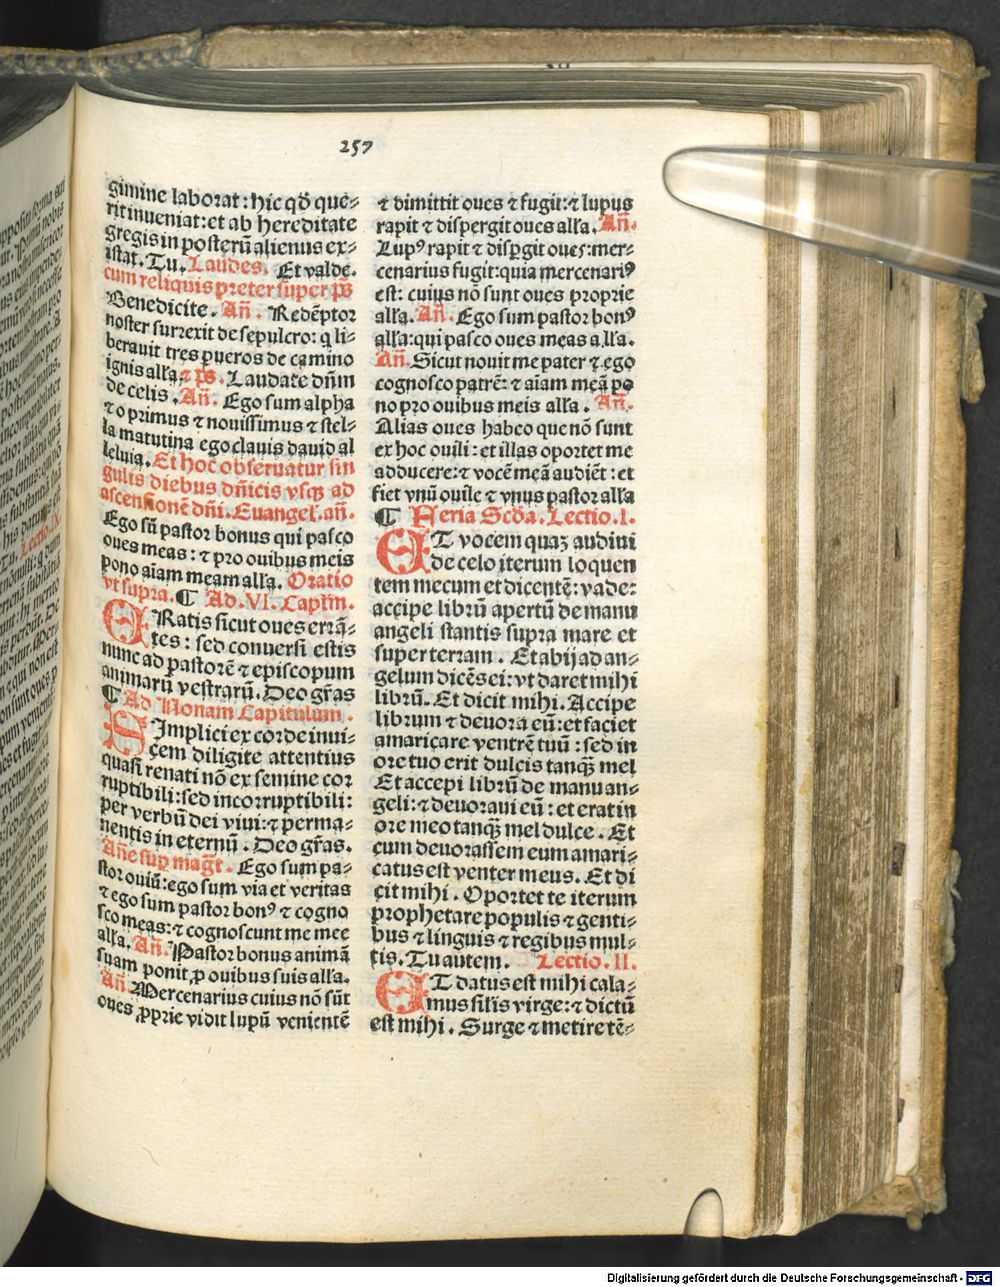 257
gimine laborat: hic qđ que⸗
rit inueniat: et ab hereditate
gregis in posterū alienus ex⸗
istat. Tu. Laudes. Et valde.
cum reliquis preter super p̄s
Benedicite. Añ. Redēptor
noster surrexit de sepulcro: q li⸗
berauit tres pueros de camino
ignis alľa. ⁊ p̄s. Laudate dn̄m
de celis. Añ. Ego sum alpha
⁊ o primus ⁊ nouissimus ⁊ stel⸗
la matutina ego clauis dauid al
leluia. Et hoc obseruatur sin
gulis diebus dn̄icis vsqꝫ ad
ascensionē dn̄i. Euangeľ. añ.
Ego sū pastor bonus qui pasco
oues meas: ⁊ pro ouibus meis
pono aīam meam alľa. Oratio
vt supra. ¶ Ad. VI. Capľm.
ERatis sicut oues errā⸗
tes: sed conuersi estis
nunc ad pastorē ⁊ episcopum
animarū vestrarū. Deo gr̄as
¶ Ad Nonam Capitulum.
SImplici ex corde inui⸗
cem diligite attentius
quasi renati nō ex semine cor
ruptibili: sed incorruptibili:
per verbū dei viui: ⁊ perma⸗
nentis in eternū. Deo gr̄as.
Añe suꝑ mag̃t. Ego sum pa⸗
stor ouiū: ego sum via et veritas
⁊ ego sum pastor bonꝰ ⁊ cogno
sco meas: ⁊ cognoscunt me mee
alľa. Añ. Pastor bonus animā
suam ponit ꝓ ouibus suis alľa.
Añ. Mercenarius cuius nō sūt
oues ꝓprie vidit lupū venientē
⁊ dimittit oues ⁊ fugit: ⁊ lupus
rapit ⁊ dispergit oues alľa. Añ.
Lupꝰ rapit ⁊ disꝑgit oues: mer⸗
cenarius fugit: quia mercenariꝰ
est: cuius nō sunt oues proprie
alľa. Añ. Ego sum pastor bonꝰ
alľa: qui pasco oues meas alľa.
Añ. Sicut nouit me pater ⁊ ego
cognosco patrē: ⁊ aīam meā po
no pro ouibus meis alľa. Añ.
Alias oues habeo que nō sunt
ex hoc ouili: et illas oportet me
adducere: ⁊ vocē meā audiēt: et
fiet vnū ouile ⁊ vnus pastor alľa
¶ Feria Scđa. Lectio. I.
ET vocem quaꝫ audiui
de celo iterum loquen
tem mecum et dicentē: vade:
accipe librū apertū de manu
angeli stantis supra mare et
super terram. Et abij ad an⸗
gelum dicēs ei: vt daret mihi
librū. Et dicit mihi. Accipe
librum ⁊ deuora eū: et faciet
amaricare ventrē tuū: sed in
ore tuo erit dulcis tanqꝫ mel
Et accepi librū de manu an⸗
geli: ⁊ deuoraui eū: et erat in
ore meo tanqꝫ mel dulce. Et
cum deuorassem eum amari⸗
catus est venter meus. Et di
cit mihi. Oportet te iterum
prophetare populis ⁊ genti⸗
bus ⁊ linguis ⁊ regibus mul⸗
tis. Tu autem. Lectio. II.
ET datus est mihi cala⸗
mus siľis virge: ⁊ dictū
est mihi. Surge ⁊ metire tē⸗
Digitalisierung gefördert durch die Deutsche Forschungsgemeinschaft - DFG